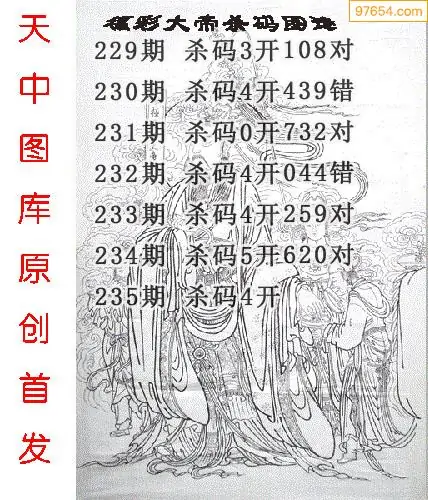 97654.com
福彩大帝杀码图谜
229期 杀码3开108对
230期 杀码4开439错
231期 杀码0开732对
232期 杀码4开044错
233期 杀码4开259对
234期 杀码5开620对
235期 杀码4开
天中图库原创首发